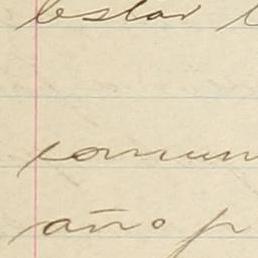 bestar
comun
año p